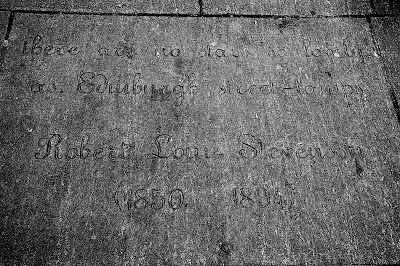 there are no stars so lovely
as Edinburgh street-lamps
Robert Louis Stevenson
(1850 1894)